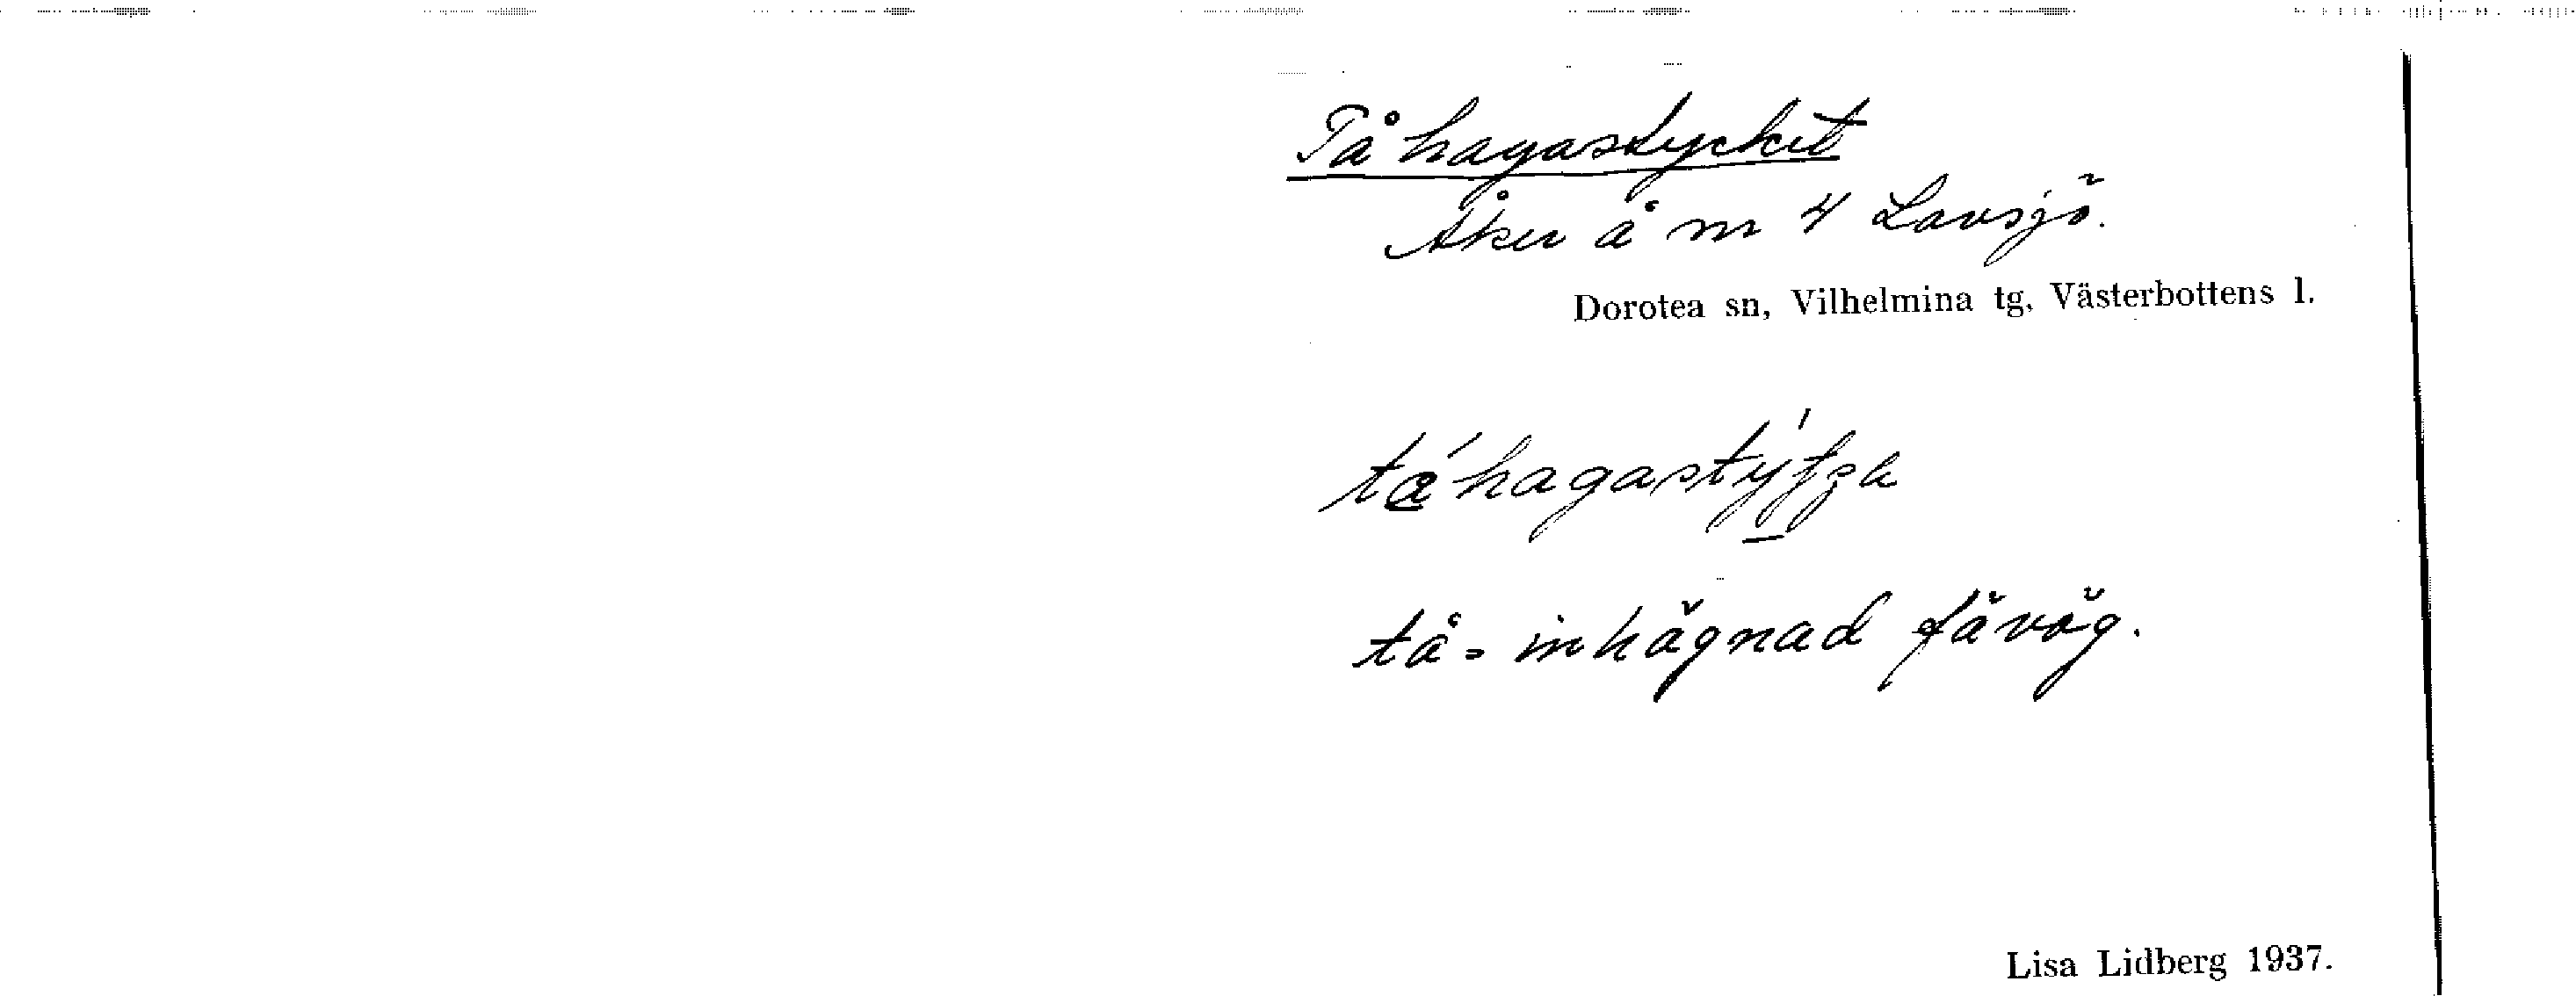 Tåhagastycket
Åker å nr 4 Lavsjö.
Dorotea sn, Vilhelmina tg, Västerbottens l.
tå = inhägnad fäväg.
Lisa Lidberg 1937.